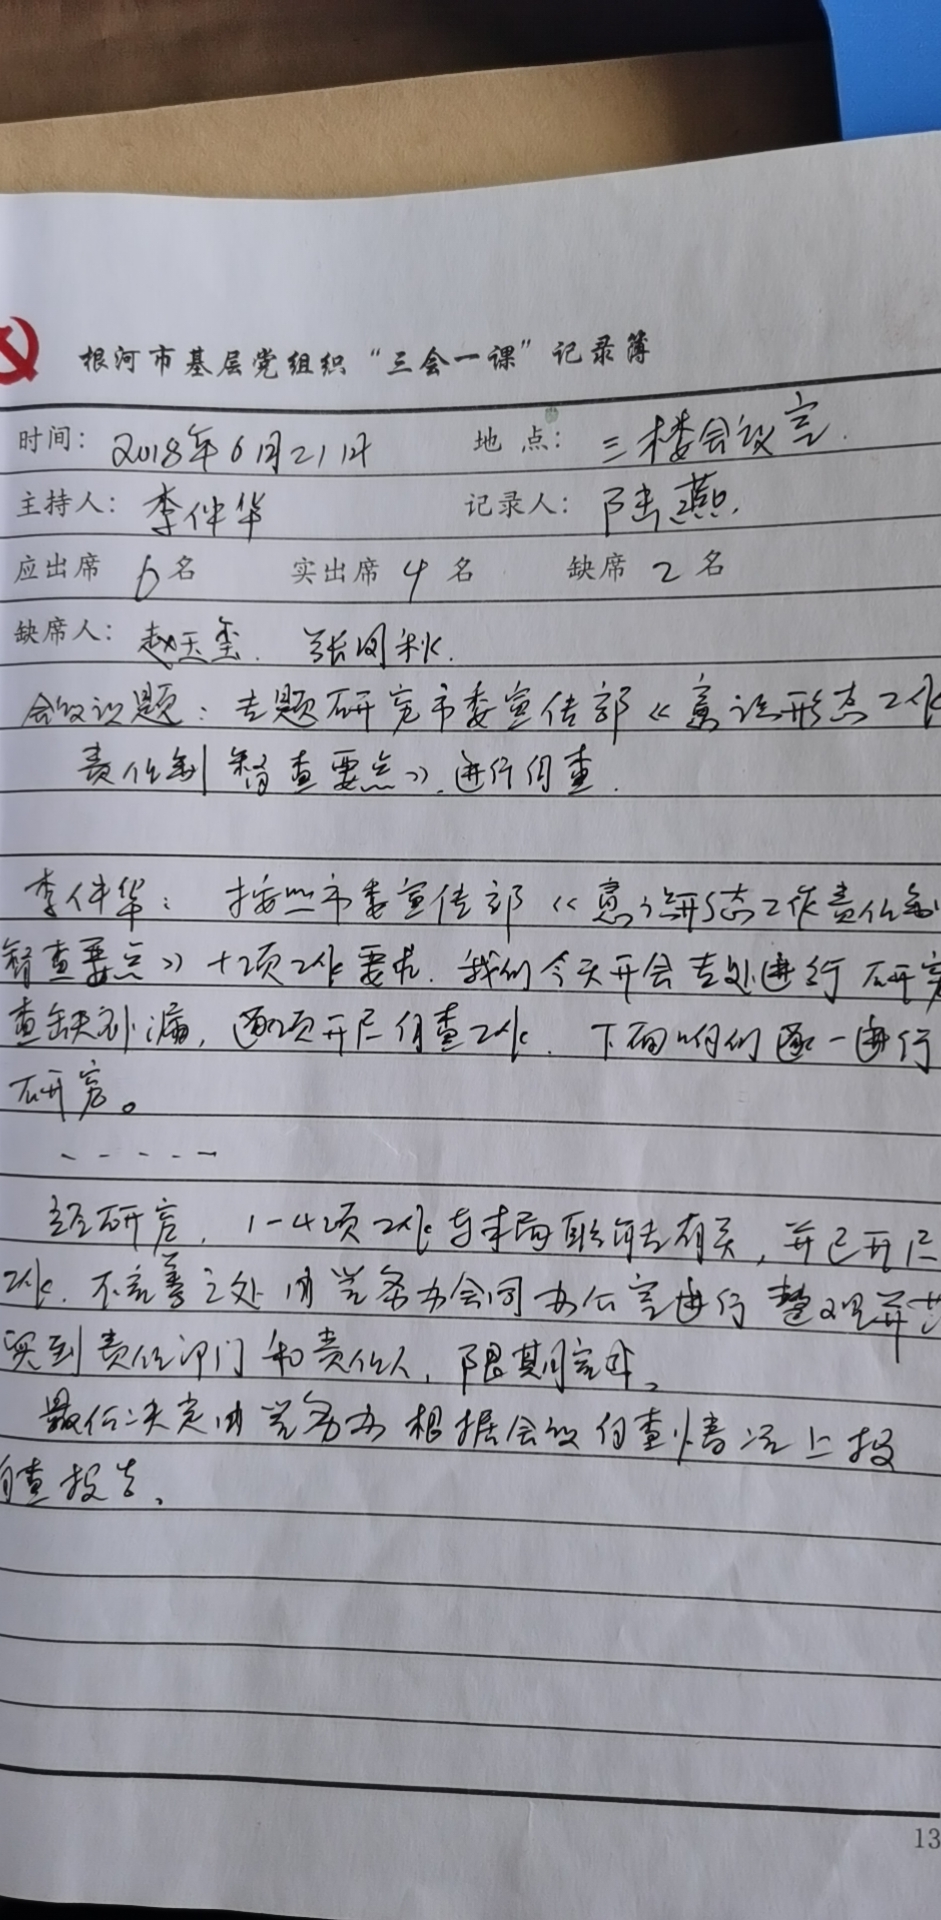 根河市基层党组织“三会一课”记录簿
时间: 2018年6月21日 地点: 三楼会议室.
主持人: 李仲华 记录人: 陆燕.
应出席 6 名 实出席 4 名 缺席 2 名
缺席人: 赵玉玺. 张国秋.
会议议题: 专题研究市委宣传部《意识形态工作
责任制督查要点》,进行自查.
李仲华: 按照市委宣传部《意识形态工作责任制
督查要点》十项工作要求. 我们今天开会专处进行研究
查缺补漏, 逐项开展自查工作. 下面咱们逐一进行
研究。
- - - - -
经研究, 1-4项工作与本局职能有关, 并已开展
工作. 不完善之处由党务办会同办公室进行整理并落
实到责任部门和责任人, 限期完毕。
最后决定由党务办根据会议自查情况上报
自查报告。
13